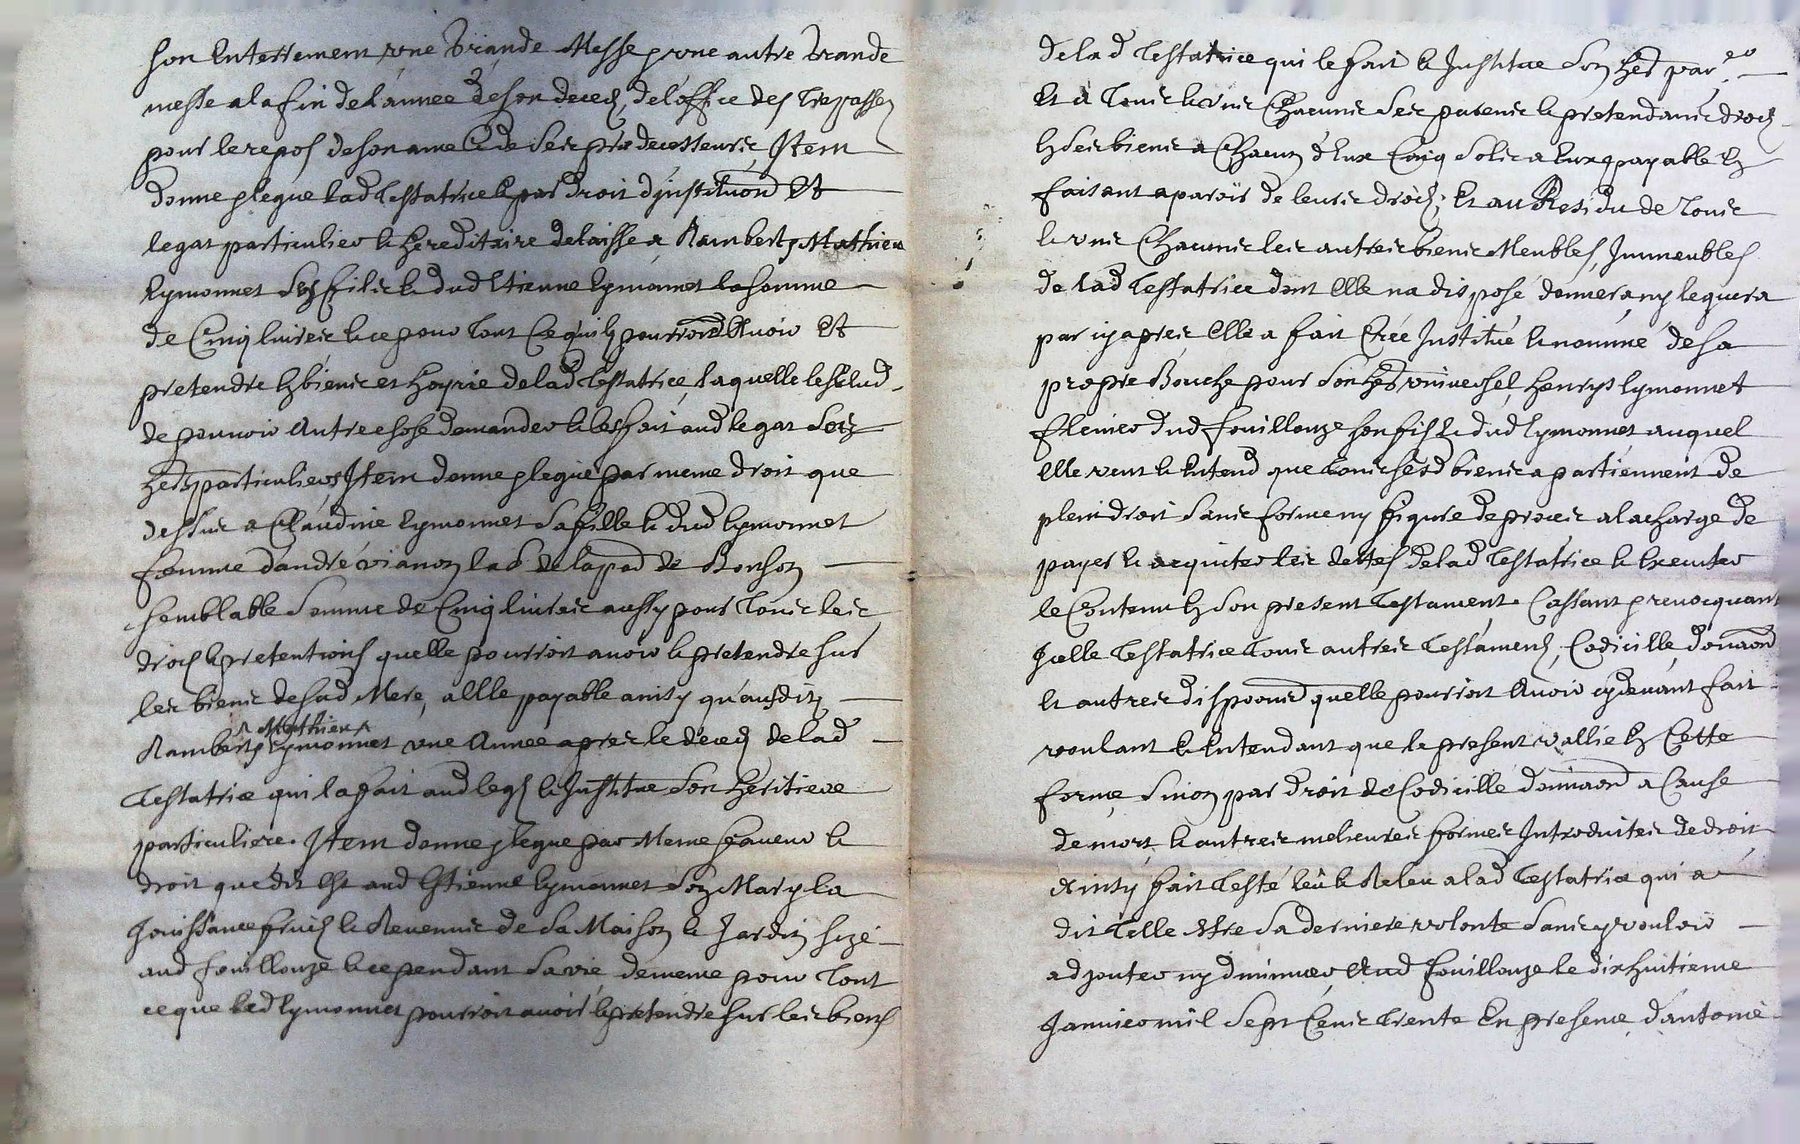 son Enterrement, une Grande Messe, & une autre Grande
messe a la fin de l'année de son deced, de l'office des Trepassez
pour le repos de son ame & de ses prœdecesseurs, Item
donne & legue lad Testatrice & par droit d'institu͠on Et
legat particulier & hereditaire delaisse a Rambert, & Mathieu
Eymonnet Ses fils & dud Etienne Eymonnet la somme
de Cinq livres & ce pour tout Ce qu'ilz pourroient Avoir Et
pretendre Ez biens et hoyrie de lad Testatrice, laquelle les Exclud
de pouvoir Autre chose demander & les fait aud legat Ses
hers particuliers, Item donne & legue par meme droit que
dessus a Claudine Eymonnet Sa fille & dud Eymonnet
femme d'andré vianon lad de la par de Bonson
semblable Somme de Cinq livres aussy pour tous les
droits & pretentions quelle pourroit avoir & pretendre sur
les biens de sad Mere, a Elle payable ainsy qu'ausdits
^ Mathieu ^
Rambert & Eymonnet une Année apres le déced de lad
Testatrice qui la fait aud legs & Institue Son heritiere
particuliere. Item donne & legue par Meme faveur &
droit que dit Est aud Estienne Eymonnet Son Mary la
Jouissance fruits & Revenus de Sa Maison & Jardin sizé
aud fouillouze & ce pendant Sa vie, de meme pour tout
ce que led Eymonnet pourroit avoir & pretendre sur les biens
de lad Testatrice qui le fait & Institue Son her par.er
Et a tous & uns Chacuns Ses parents & pretendants droits
Ez Ses biens a Chacun d'Eux Cinq Sols a Eux payable En
faisant aparoir de leurs droits; Et au Residu de tous
& uns Chacuns les autres biens Meubles, Immeubles
de lad Testatrice dont Elle na disposé donnera ny leguera
par cy apres Elle a fait Créé Institué & nommé de sa
propre Bouche pour Son her universel, henrys Eymonnet
dud fouillouze son fils & dud Eymonnet auquel
Elle veut & Entend que tous sesd biens apartiennent de
plein droit Sans forme ny figure de proces a la charge de
payer & acquiter les dettes de lad Testatrice & Executer
le Contenu En Son present Testament. Cassant & revocquant
Icelle Testatrice tous autres Testaments, Codicille, dona͠on
Et autres dispo͠ons quelle pourroit Avoir cy devant fait
voulant & Entendant que le present vallie En Cette
forme, Sinon par droit de Codicille dona͠on a Cause
de mort, & autres melieures formes Introduites de droit
Ainsy fait Testé leu & Releu a lad Testatrice qui a
dit telle Estre Sa derniere volonte Sans y vouloir
adjouter ny diminuer, Aud fouillouze le dixhuitieme
Janvier mil Sept Cens trente En presence d'antoine